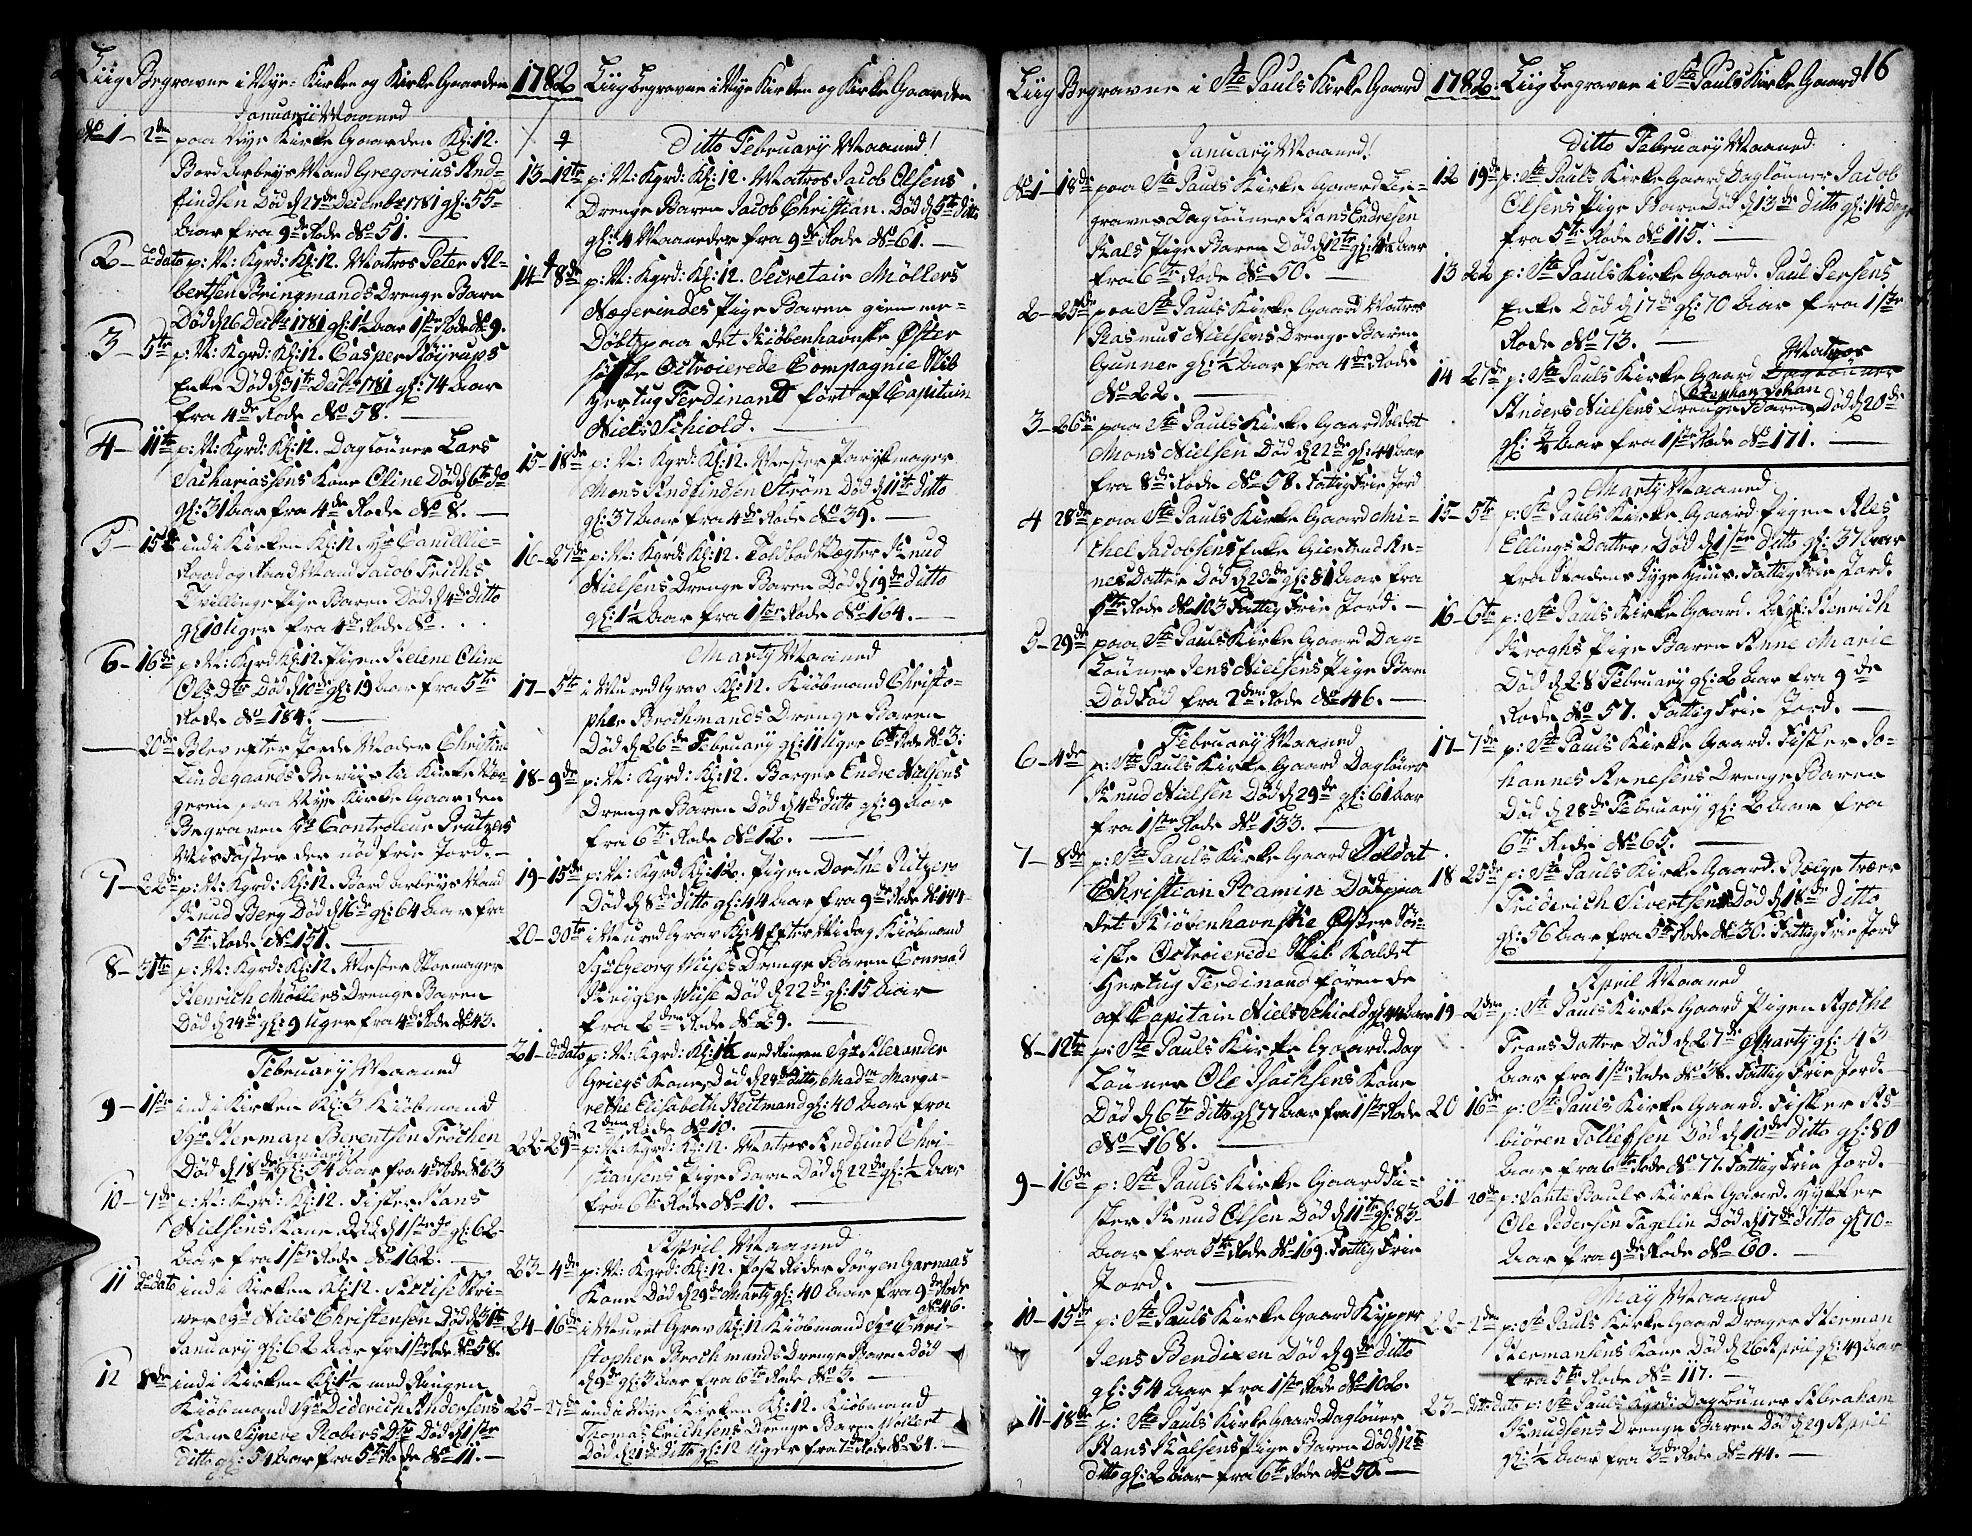 Liig Begravne i Nye-Kirke og Kirke Gaarden
Januarii Maaned
No 1 - 2den paa Nye Kirke Gaarden Kl: 12.
Bord Arbeys Mand Gregorius And-
findsen Død d 27de Decembr 1781 gl: 55-
Aar fra 9de Rode No 51.
2 - do dato p: N: Kgrd: Kl: 12. Matros Peter Al-
bertsen Bringmands Drenge Barn
Død d 26 Decbr 1781 gl: 1½ Aar 1ste Rode No 9.
3 - 5te p: N: Kgrd: Kl: 12. Casper Røyrups
Enke Død d 31te Decbr 1781 gl: 74 Aar
fra 4de Rode No 58.
4 - 11te p: N: Kgrd: Kl: 12. Dagløner Lars
Zachariassens Kone Oline Død d 6te do
gl: 31 Aar fra 4de Rode No 8.
5 - 15de ind i Kirken Kl: 12. Hr Cancellie-
Raad og Raad Mand Jacob Frichs
Tvillinge Pige Baren Død d 4de ditto
gl: 10 Uger fra 4de Rode No . . .
6 - 16de p: N: Kgrd: Kl: 12. Pigen Helene Oline
Ols dtr Død d 10de gl: 19 Aar fra 5te
Rode No 184.
20de Blev efter Jorde Moder Christine
Lindegaards Beviis til Kirke Vær-
geren paa Nye Kirke Gaarden
Begraven Sr Controleur Prutzers
Misfoster der nød frie Jord.
7 - 22de p: N: Kgrd: Kl: 12. Bord Arbeys Mand
Knud Berg Død d 16de gl: 64 Aar fra
5te Rode No 151.
8 - 31te p: N: Kgrd: Kl: 12. Mester Skomager
Henrich Møllers Drenge Baren
Død d 24de gl: 9 Uger fra 4de Rode No 43.
February Maaned
9 - 1ste ind i Kirken Kl: 3 Kiøbmand
Sgr Herman Berentsen Frochen
Død d 18de January gl: 54 Aar fra 4de Rode No 63
10 - 7de p: N: Kgrd: Kl: 12. Fisker Hans
Nielsens Kone Død d 1ste do gl: 62
Aar fra 1ste Rode No 162.
11 do dato ind i Kirken Kl: 12. Accise Skri-
ver Sgr Niels Christensen Død d 31te
January gl: 62 Aar fra 1ste Rode No 58.
12 8de ind i Kirken Kl: 1½ med Ringen
Kiøbmand Sgr Diderich Andersens
Kone Synneve Robers Dtr Død d 1ste
ditto gl: 54 Aar fra 5te Rode No 11.
1782 Liig Begravne i Nye Kirken og Kirke Gaarden
Ditto February Maaned!
13 - 12te p: N: Kgrd: Kl: 12. Matros Jacob Olsens
Drenge Baren Jacob Christian. Død d 5te ditto
gl: 4 Maaneder fra 9de Rode No 61.
14 - 8de p: N: Kgrd: Kl: 12. Secretair Møllers
Negerindes Pige Baren hiemme-
Døbt paa det Kiøbenhavnske Øster
søiske Octroierede Compagnie Skib
Hertug Ferdinand ført af Capitain
Niels Schiold.
15 - 18de p: N: Kgrd: Kl: 12. Mester Parykmager
Mons Andfinden Strøm Død d 11te ditto
gl: 37 Aar fra 4de Rode No 39.
16 - 27de p: N: Kgrd: Kl: 12. Toldbod Vægter Knud
Nielsens Drenge Baren Død d 19de ditto
gl: 1½ Aar fra 1ste Rode No 164.
Marty Maaned
17 - 5te i Mured Grav Kl: 12. Kiøbmand Christo-
pher Brochmands Drenge Baren
Død d 26de February gl: 11 Uger 6te Rode No 3.
18 - 9de p: N: Kgrd: Kl: 12. Borger Endre Nielsens
Drenge Baren Død d 4de ditto gl: 9 Aar
fra 6te Rode No 12.
19 - 15de p: N: Kgrd Kl: 12. Pigen Dorthe Pitzers
Død d 8de ditto gl: 44 Aar fra 9de Rode No 144
20 - 30te i Mured Grav Kl: 4 Efter Middag Kiøbmand
Sgr Georg Wiises Drenge Baren Conraad
Krÿger Wiise Død d 22de gl: 15 Aar
fra 2den Rode No 29.
21 - do dato p: N: Kgrd: Kl: 1½ med Ringen Sgr Alexander
Griegs Kone, Død d 24de ditto Madm Marga-
rethe Elisabeth Heitmand gl: 40 Aar fra
2den Rode No 10.
22 - 29de p: N: Kgrd: Kl: 12. Matros Andfind Chri-
stiansens Pige Baren Død d 22de gl: ½ Aar
fra 6te Rode No 10.
April Maaned
23 - 4de p: N: Kgrd: Kl: 12. Post Rider Jørgen Garnaas
Kone Død d 29de Marty gl: 40 Aar fra 9de Rode
No 46.
24 - 16de i Muret Grav Kl: 12 Kiøbmand Sgr Chri-
stopher Brochmands Drenge Baren Død
d 9de gl: 3 Aar fra 6te Rode No 3.
25 - 27de ind i Nye Kirken Kl: 12. Kiøbmand
Thomas Erichsens Drenge Baren Wollert
Død d 21de ditto gl: 12 Uger fra 7de Rode No 24.
Liig Begravne i Ste Pauls Kirke Gaard
January Maaned!
No 1 - 18de paa Ste Pauls Kirke Gaard Lii-
graver Dagløner Hans Endresen
Hals Pige Baren Død d 12te gl: 4½ Aar
fra 6te Rode No 50.
2 - 25de paa Ste Pauls Kirke Gaard Matros
Rasmus Nielsens Drenge Baren
Gunner gl: ½ Aar fra 4de Rode
No 22.
3 - 26de paa Ste Pauls Kirke Gaard Soldat
Mons Nielsen Død d 22de gl: 44 Aar
fra 8de Rode No 58. Fattig Frie Jord
4 28de paa Ste Pauls Kirke Gaard Mi-
chel Jacobsens Enke Giertrud An-
nes Datter Død d 23de gl: 81 Aar fra
8te Rode No 103 Fattig Frie Jord.
5 - 29de paa Ste Pauls Kirke Gaard Dag-
Løuner Jens Nielsens Pige Barn
Død Fød fra 2den Rode No 46.
February Maaned
6 - 4de p: Ste Pauls Kirke Gaard Dagløner
Knud Nielsen Død d 29de gl: 61 Aar
fra 1ste Rode No 133.
7 - 8de p: Ste Pauls Kirke Gaard Soldat
Christian Ramin Død paa
det Kiøbenhavnske Øster Søi-
iske Octroierede Skib Kaldet
Hertug Ferdinand førende
af Capitain Niels Schiold gl: 44 Aar
8 - 12te p: Ste Pauls Kirke Gaard. Dag
Løuner Ole Isachsens Kone
Død d 6te ditto gl: 77 Aar fra 1ste Rode
No 168.
9 - 16de p: Ste Pauls Kirke Gaard Fi-
sker Knud Olsen Død d 11te gl: 83
Aar fra 5te Rode No 169. Fattig Frie
Jord.
10 - 15de p: Ste Pauls Kirke Gaard Kypper
Jens Bendixen Død d 9de ditto
gl: 54 Aar fra 1ste Rode No 102.
11 - 18de p: Ste Pauls Kirke Gaard Dagløner
Hans Halsens Pige Baren Død d 12te
ditto gl: 2 Aar fra 6te Rode No 50.
1782. Liig begravne i Ste Pauls Kirke Gaard 16
Ditto February Maaned.
12 19de p: Ste Pauls Kirke Gaard Dagløuner Jacob
Olsens Pige Baren Død d 13de ditto gl: 14 Dage
fra 5te Rode No 115.
13 22 p: Ste Pauls Kirke Gaard. Paul Persens
Enke Død d 17de gl: 70 Aar fra 1ste
Rode No 73.
Matros
14 27de p: Ste Pauls Kirke Gaard Dagløuner
Stephan Johan
Anders Nielsens Drenge Baren Død d 20de
gl: ¾ Aar fra 1ste Rode No 171.
Marty Maaned
15 - 5te p: Ste Pauls Kirke Gaard Pigen Ales
Ellings Datter, Død d 1ste ditto gl: 37 Aar
fra Stadens Syge Huus. Fattig Frie Jord.
16 - 6te p: Ste Pauls Kirke Gaard. Henrich
Kroghs Pige Baren Anne Marie
Død d 28 February gl: 2 Aar fra 9de
Rode No 57. Fattig Frie Jord.
17 - 7de p: Ste Pauls Kirke Gaard. Fisker Jo-
hannes Arnesens Drenge Baren
Død d 28de February gl: 2 Aar fra
6te Rode No 65.
18 25de p: Ste Pauls Kirke Gaard. Bælge træer
Friderich Sivertsen Død d 18de ditto
gl: 56 Aar fra 5te Rode No 30. Fattig Frie Jord
April Maaned
19 - 2den p: Ste Pauls Kirke Gaard Pigen Agothe
Frans Datter Død d 27de Marty gl: 43
Aar fra 1ste Rode No 38. Fattig Frie Jord.
20 16de p: Ste Pauls Kirke Gaard. Fisker As-
biøren Tollefsen Død d 10de ditto gl: 80
Aar fra 6te Rode No 77. Fattig Frie Jord.
21 - 20de p: Sante Pauls Kirke Gaard. Kypper
Ole Pedersen Fagelin Død d 17de ditto gl: 70
Aar fra 9de Rode No 60.
May Maaned
22 - 2den p: Ste Pauls Kirke Gaard Drager Herman
Hermansens Kone Død d 26 April gl: 49 Aar
fra 5te Rode No 117.
23 - ditto Dato p: Ste Pauls Kgrd: Dagløuner Abraham
Knudsens Drenge Baren Død d 29 April
gl: ½ Aar fra 3de Rode No 44.